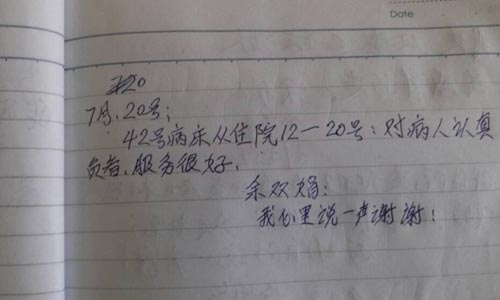 Date
7月.20号:
42号病床从住院12一20号:对病人认真
负责、服务很好、
余双娟:
我心里说一声谢谢!